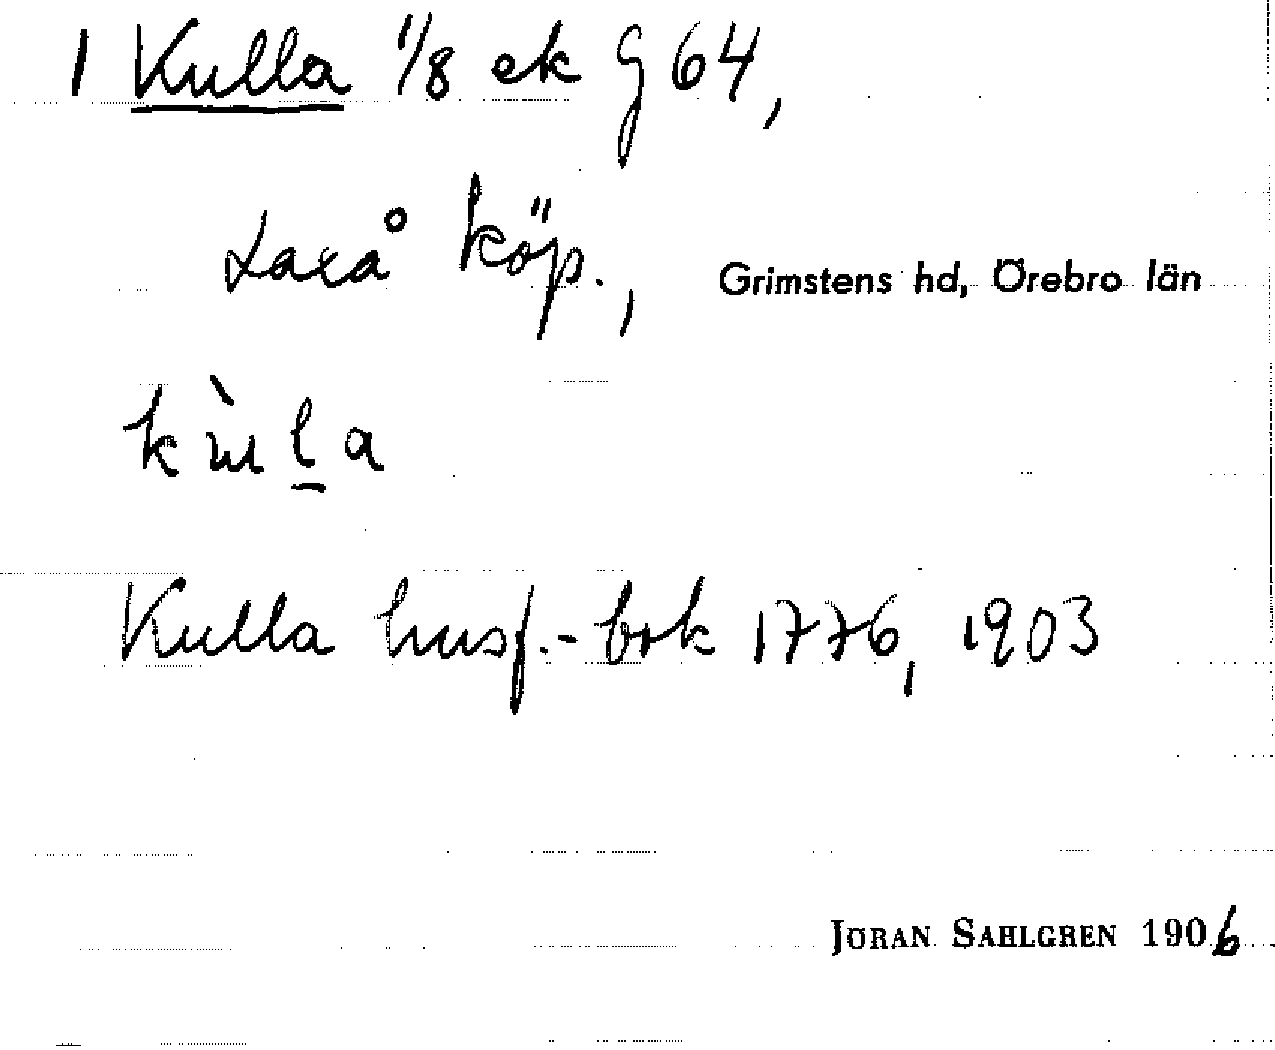 1 Kulla 1/8 ek G 64,
Laxå köp., Grimstens hd, Örebro län
kùl̲a
Kulla husf.-bok 1776, 1903
JÖRAN SAHLGREN 1906